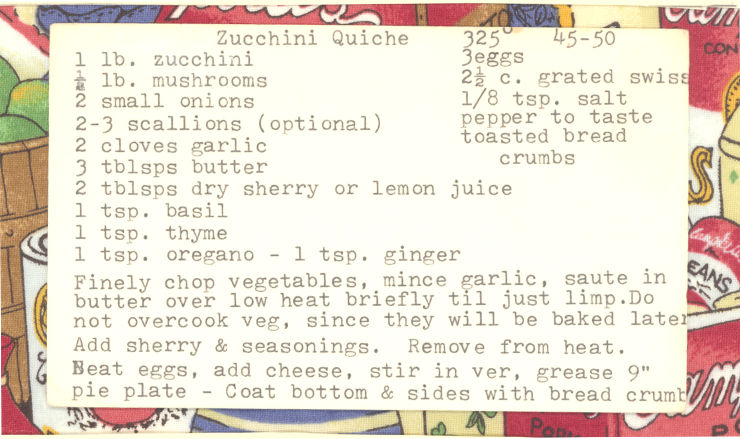 Zucchini Quiche 325° 45-50
1 lb. zucchini
½ lb. mushrooms
2 small onions
2-3 scallions (optional)
2 cloves garlic
3 tblsps butter
2 tblsps dry sherry or lemon juice
1 tsp. basil
1 tsp. thyme
1 tsp. oregano - 1 tsp. ginger
3eggs
2½ c. grated swiss
1/8 tsp. salt
pepper to taste
toasted bread
crumbs
Finely chop vegetables, mince garlic, saute in
butter over low heat briefly til just limp.Do
not overcook veg, since they will be baked later
Add sherry & seasonings. Remove from heat.
Beat eggs, add cheese, stir in ver, grease 9"
pie plate - Coat bottom & sides with bread crumb
CON
EANS